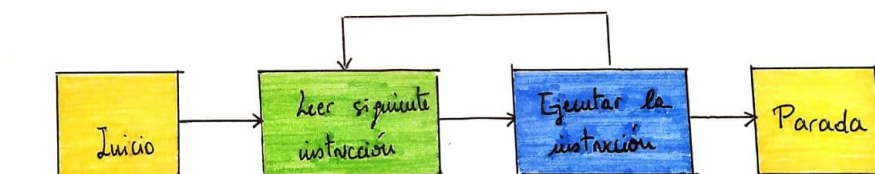 Inicio
Leer siguiente
instrucción
Ejecutar la
instrucción
Parada